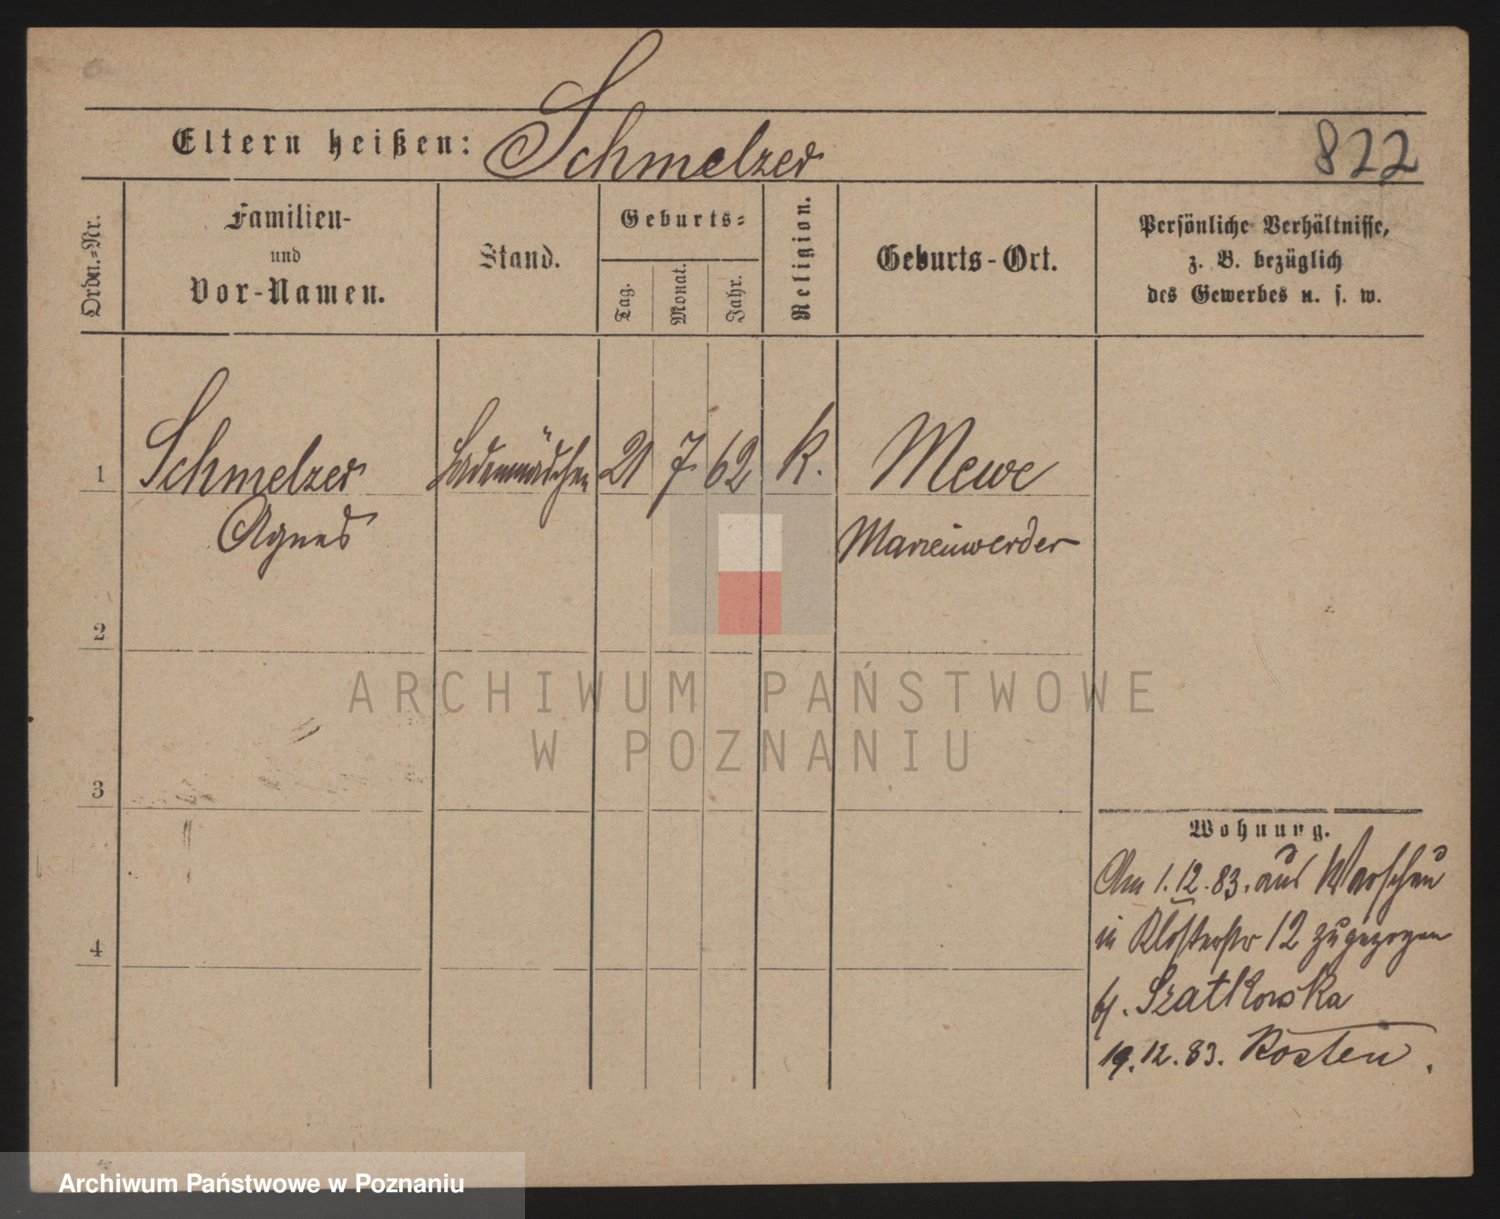 Eltern heißen: Schmelzer
822
Ordn.-Nr.
Familien-
und
Vor-Namen.
Stand.
Geburts-
Tag.
Monat.
Jahr.
Religion.
Geburts-Ort.
Persönliche Verhältnisse,
z. B. bezüglich
des Gewerbes u. s. w.
1 Schmelzer Ladenmädchen 21 7. 62 K. Mewe
Agnes Marienwerder
2
3
4
Wohnung.
Am 1.12.83. aus Warschau
in Klosterstr 12 zugezogen
b/. Szatkowska
19.12.83. Kosten.
ARCHIWUM PAŃSTWOWE
W POZNANIU
Archiwum Państwowe w Poznaniu